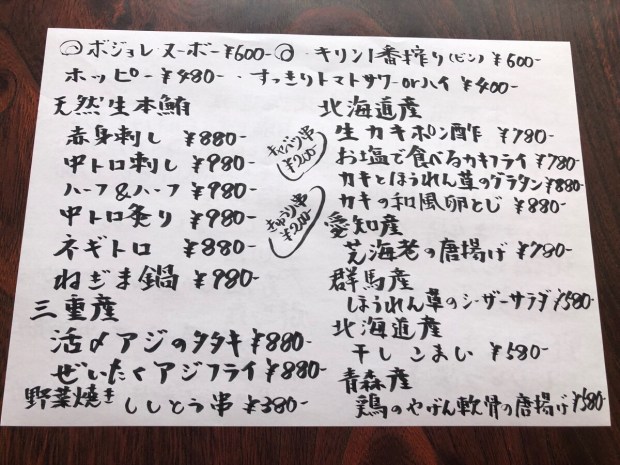 ボジョレ・ヌーボー ¥600-
・キリン1番搾り(ビン) ¥600-
ホッピー ¥480-
・すっきりトマトサワーorハイ ¥400-
天然生本鮪
赤身刺し ¥880-
中トロ刺し ¥980-
ハーフ&ハーフ ¥980-
中トロ炙り ¥980-
ネギトロ ¥880-
ねぎま鍋 ¥980-
三重産
活〆アジのタタキ ¥880-
ぜいたくアジフライ ¥880-
野菜焼き ししとう串 ¥380-
キャベツ串
¥200-
きゅうり串
¥200-
北海道産
生カキポン酢 ¥780-
お塩で食べるカキフライ ¥780-
カキとほうれん草のグラタン ¥880-
カキの和風卵とじ ¥880-
愛知産
芝海老の唐揚げ ¥780-
群馬産
ほうれん草のシーザーサラダ ¥580-
北海道産
干しこまい ¥580-
青森産
鶏のやげん軟骨の唐揚げ ¥580-